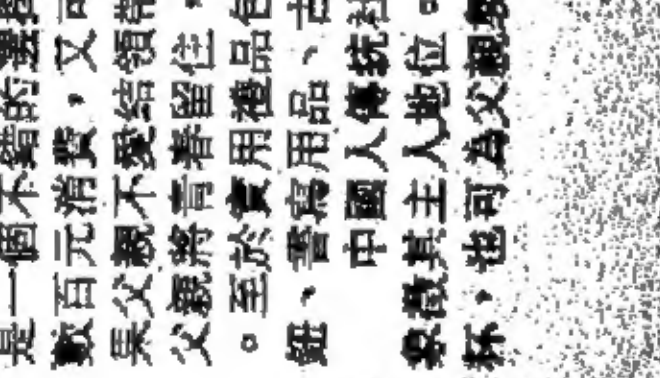 是一個不錯的選
數百元消費，又可
果父親不愛結領
父親將 留住
。至於實用禮品包
鈕、書寫用品、
中國人傳統
象徵其主人地位。
杯，也可為父親